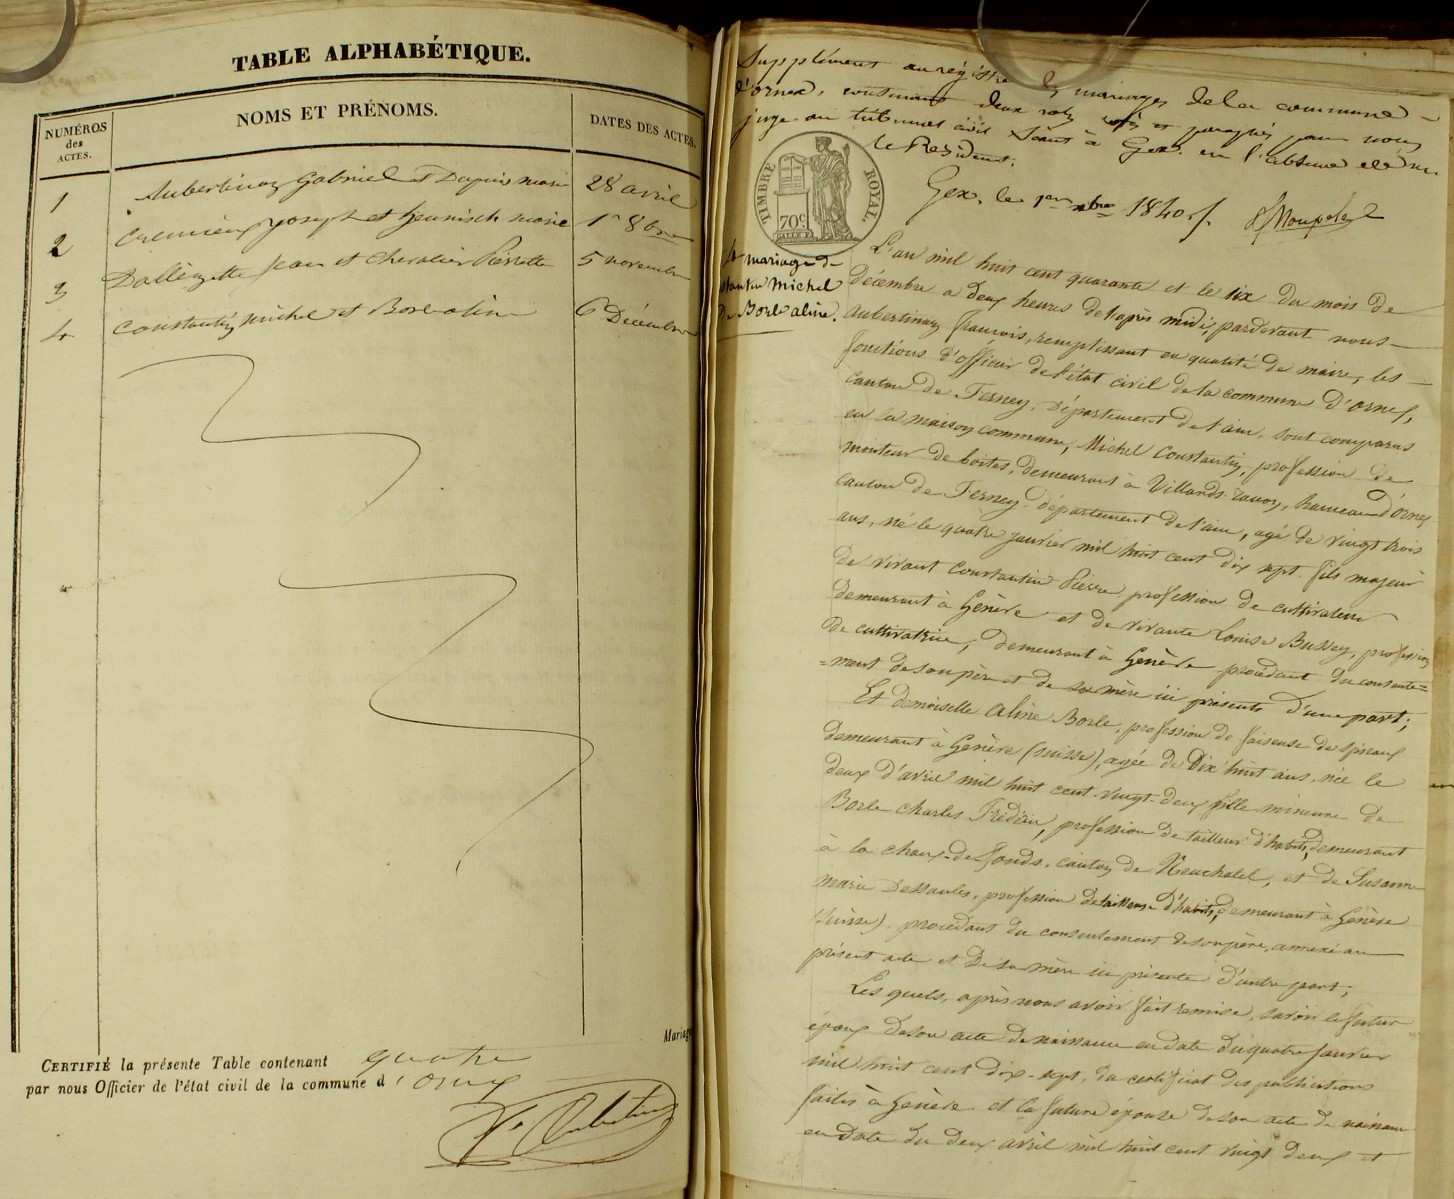 TABLE ALPHABÉTIQUE.
NUMÉROS
des
ACTES.
NOMS ET PRÉNOMS.
DATES DES ACTES.
1 Aubertinaz Gabriel et Dupuis marie 28 avril
2 Cremieux joseph et Jeunisch marie 1er 8bre
3 Dallèzette jean et Chevalier Pierrette 5 novembre
4 Constantin michel et Borle aline 6 Décembre
Mariage
CERTIFIÉ la présente Table contenant quatre
par nous Officier de l'état civil de la commune d'ornex
Supplément au registre des mariages de la commune
d'ornex, contenant deux rolles et paraphés par nous
juge au tribunal civil séant à Gex. en l'absence de m.
le Président.
Gex, le 1er xbre 1840.
TIMBRE ROYAL.
70c
4 mariage de
Constantin Michel
& Borle aline.
L'an mil huit cent quarante et le six du mois de
Décembre a deux heures de l'après midi, pardevant nous
aubertinaz françois, remplissant en qualité de maire, les
fonctions d'officier de l'état civil de la commune d'ornex,
canton de Ferney, Département de l'ain, sont comparus
en la maison commune, Michel Constantin, profession de
monteur de boites, demeurant à Villards Tacon, hameau d'Ornex
canton de Ferney département de l'ain, agé de vingt trois
ans, né le quatre janvier mil huit cent dix sept. fils majeur
de vivant Constantin Pierre profession de cultivateur
demeurant à Genève et de vivante Louise Bussey, profession
de cultivatrice, demeurant à Genève procédant du consente=
=ment de son père et de sa mère ici présents d'une part;
Et demoiselle Aline Borle, profession de faiseuse de spiraux
demeurant à Genève (suisse), agée de Dix huit ans, née le
deux d'avril mil huit cent vingt-deux fille mineure de
Borle Charles Frédéric, profession de tailleur d'habits, demeurant
à la chaux-de-fonds, canton de Neuchatel, et de Susanne
marie Dessaules, profession de tailleuse d'habits, demeurant à Genève
(suisse). procédant du consentement de son père, annexé au
présent acte et de sa mère ici présente d'autre part;
Les quels, après nous avoir fait remise, savoir le futur
époux de son acte de naissance en date du quatre janvier
mil huit cent dix-sept, du certificat des publications
faites à Genève et la future épouse de son acte de naissance
en date du deux avril mil huit cent vingt deux et